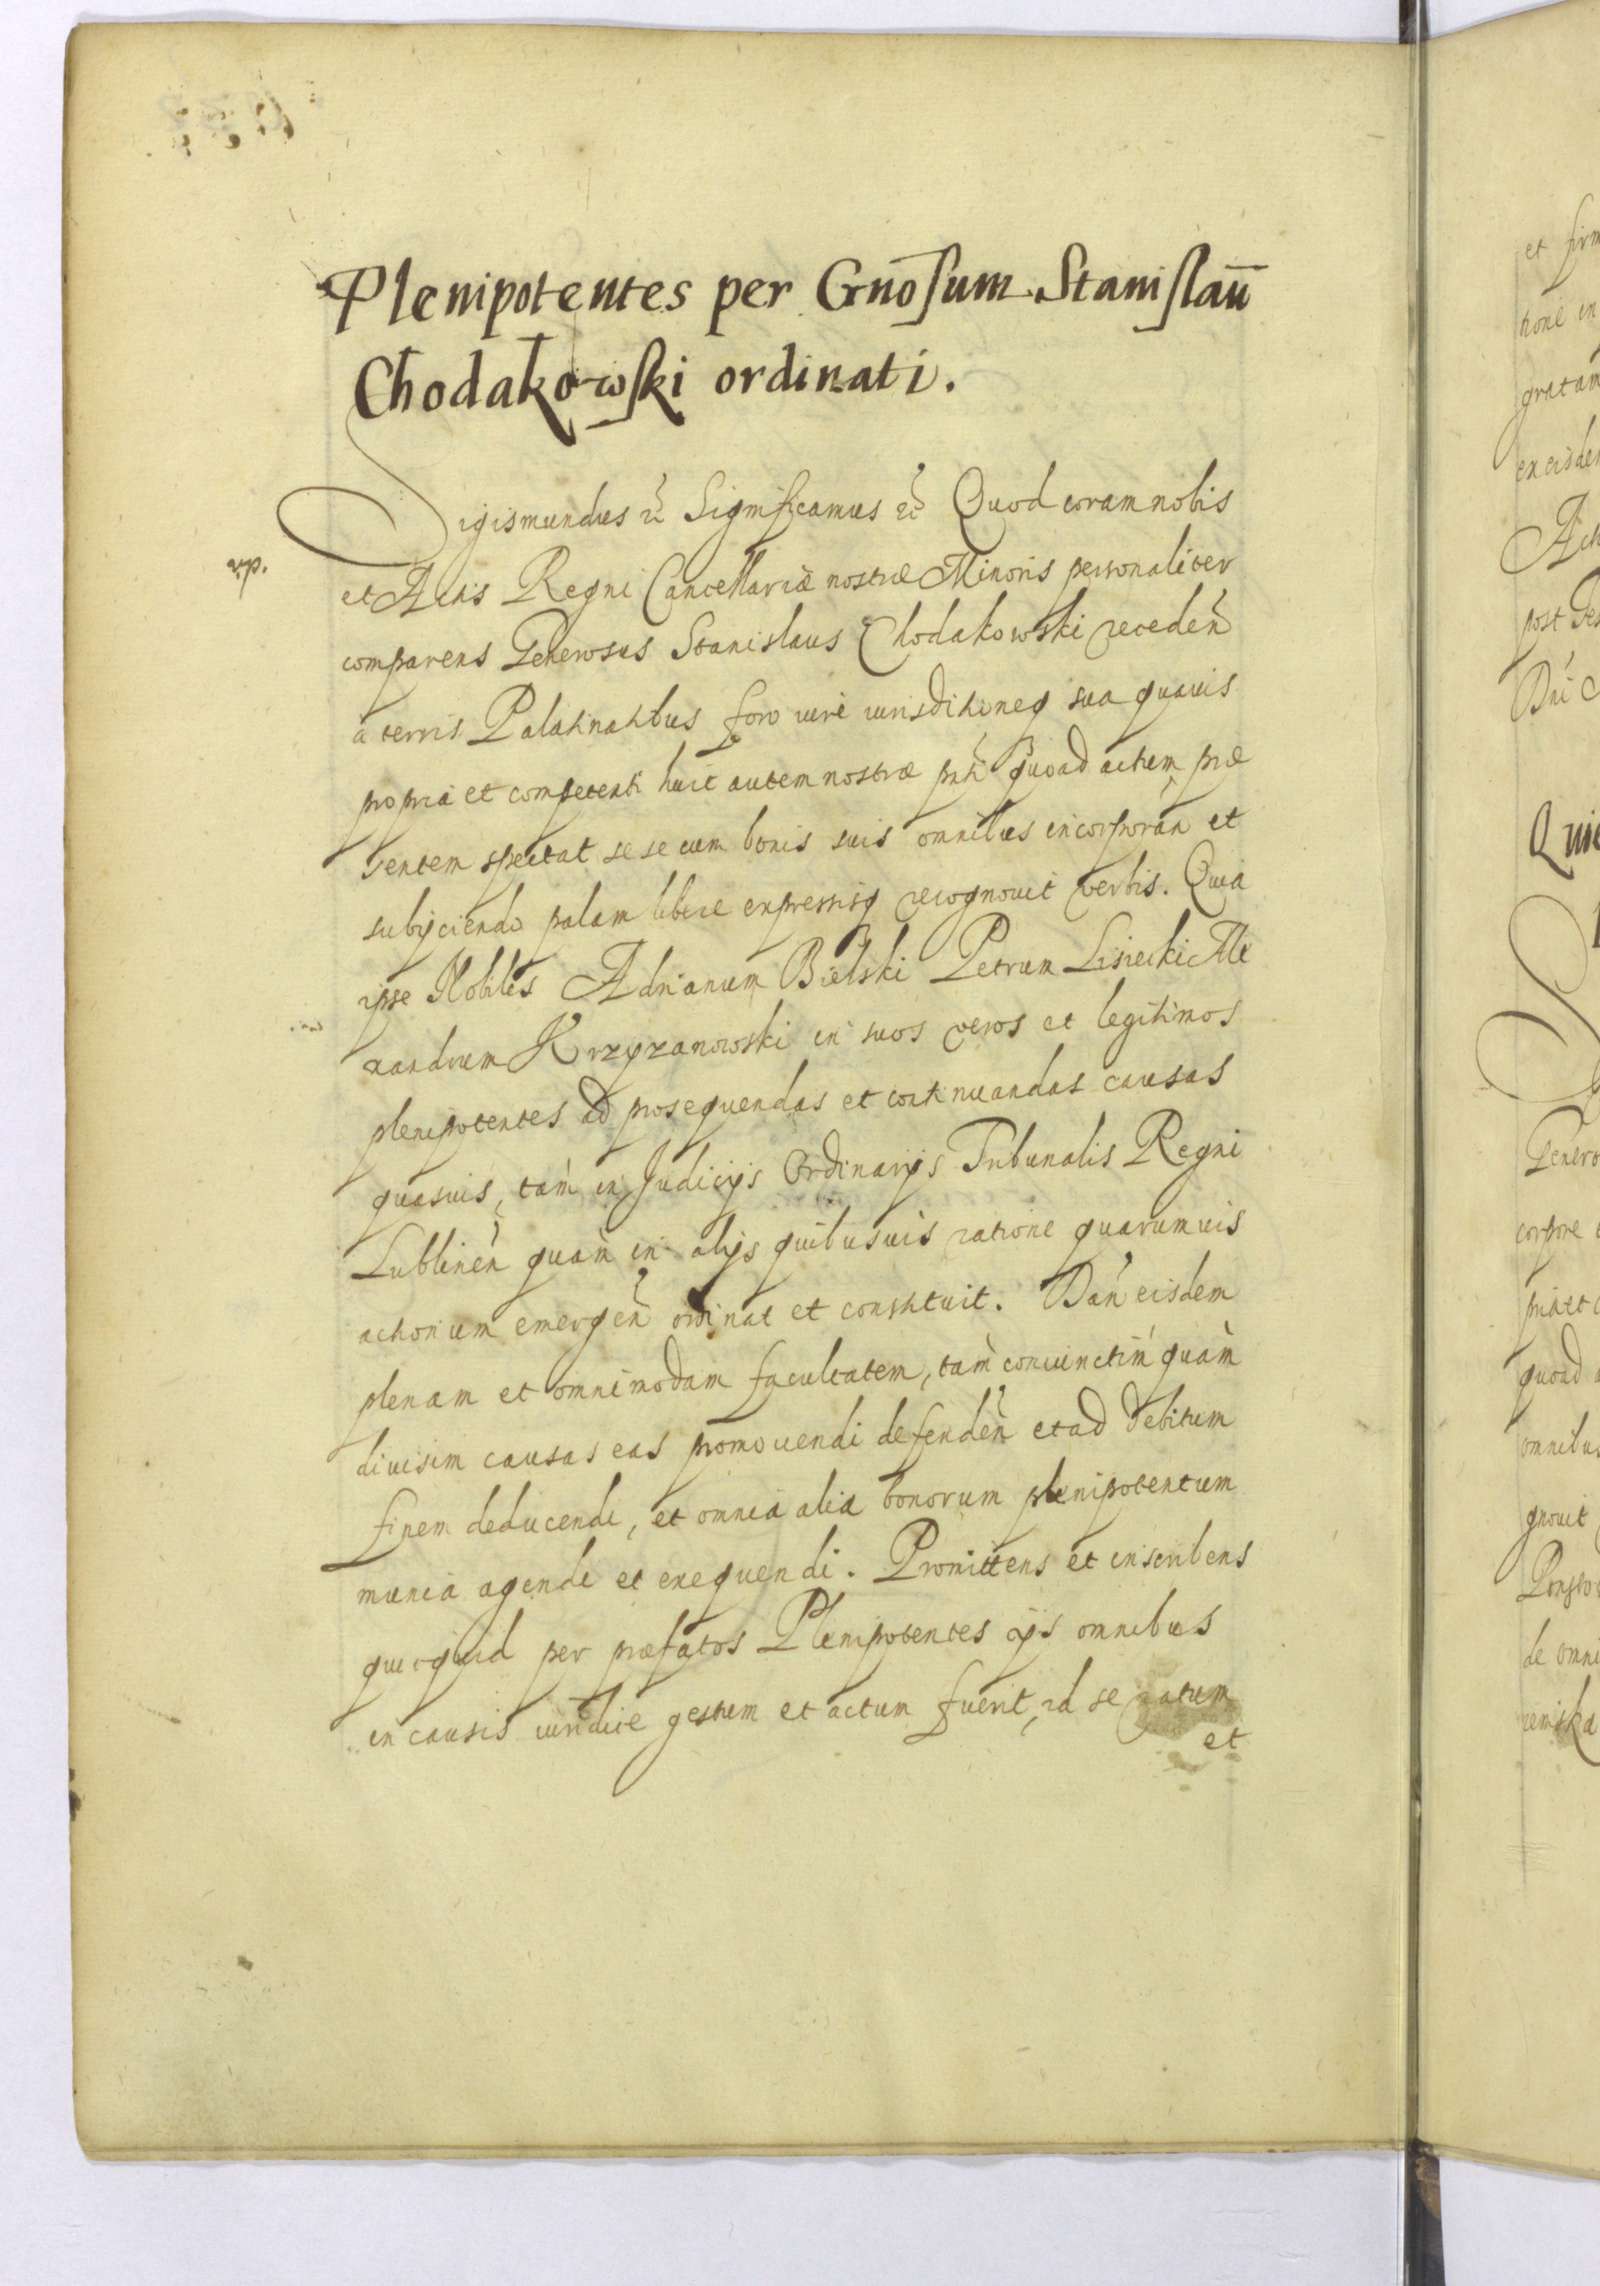 Plenipotentes per Gnōsum Stanislaū
Chodakowski ordinati.
Sigismundus etc̃ Significamus etc̃ Quod coram nobis
et Actis Regni Cancellariæ nostræ Minoris personaliter
comparens Generosus Stanislaus Chodakowski receden̄
à terris Palatinatibus foro iure iurisditioneq sua quauis
propria et competenti huic autem nostræ quoad actum præ
sentem spectat se se cum bonis suis omnibus incorporan̄ et
subijciendo palam libere expressisq recognouit verbis. Quia
ipse Nobiles Adrianum Bielski Petrum Lisiecki Ale
xandrum Krzyzanowski in suos veros et legitimos
plenipotentes ad prosequendas et continuandas causas
quasuis, tàm in Judicijs Ordinarijs Tribunalis Regni
Lublinen̄ quàm in alijs quibusuis ratione quarumuis
actionum emergen̄ ordinat et constituit. Dan̄ eisdem
plenam et omnimodam facultatem, tàm coniunctim quàm
diuisim causas eas promouendi defenden̄ et ad debitum
finem deducendi, et omnia alia bonorum plenipotentum
munia agendi et exequendi. Promittens et inscribens
quicquid per præfatos Plenipotentes ijs omnibus
in causis iuridice gestum et actum fuerit, id se ratum
et
et firm
gratam
ex eisdem
post
Quie
Genero
corpore
quoad a
omnibus
gnouit
de omni